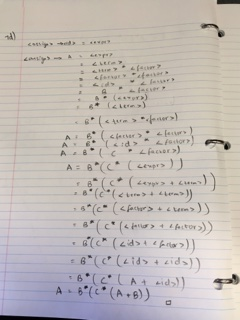 <assign> → <id> = <expr>
<assign> → A = <expr>
= <term>
= <term> * <factor>
= <factor> * <factor>
= <id> * <factor>
= B * <factor>
= B * (<expr>)
= B * (<term>)
= B* (<term> * <factor>)
A = B* (<factor> * <factor>)
A = B* (<id> * <factor>)
A = B* (C * <factor>)
A = B* (C* (<expr>))
= B* (C* (<expr> + <term>))
= B* (C* (<term> + <term>))
= B* (C* (<factor> + <term>))
= B* (C* (<factor> + <factor>))
= B* (C* (<id> + <factor>))
= B* (C* (<id> + <id>))
= B* (C* (A + <id>))
A = B* (C* (A+B))